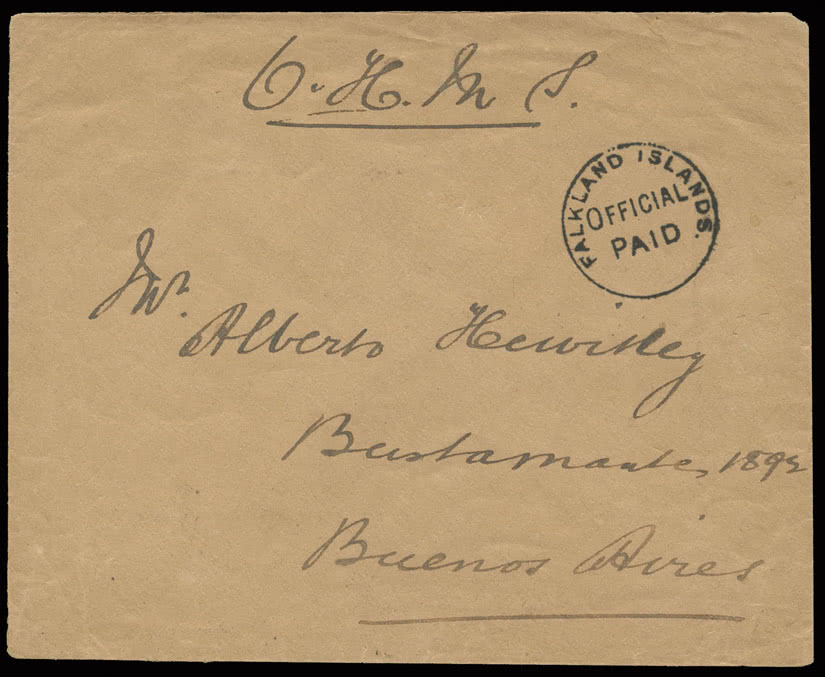 O. H. M S.
FALKLAND ISLANDS.
OFFICIAL
PAID
Mr.
Alberto
Bustamante, 1892
Buenos Aires